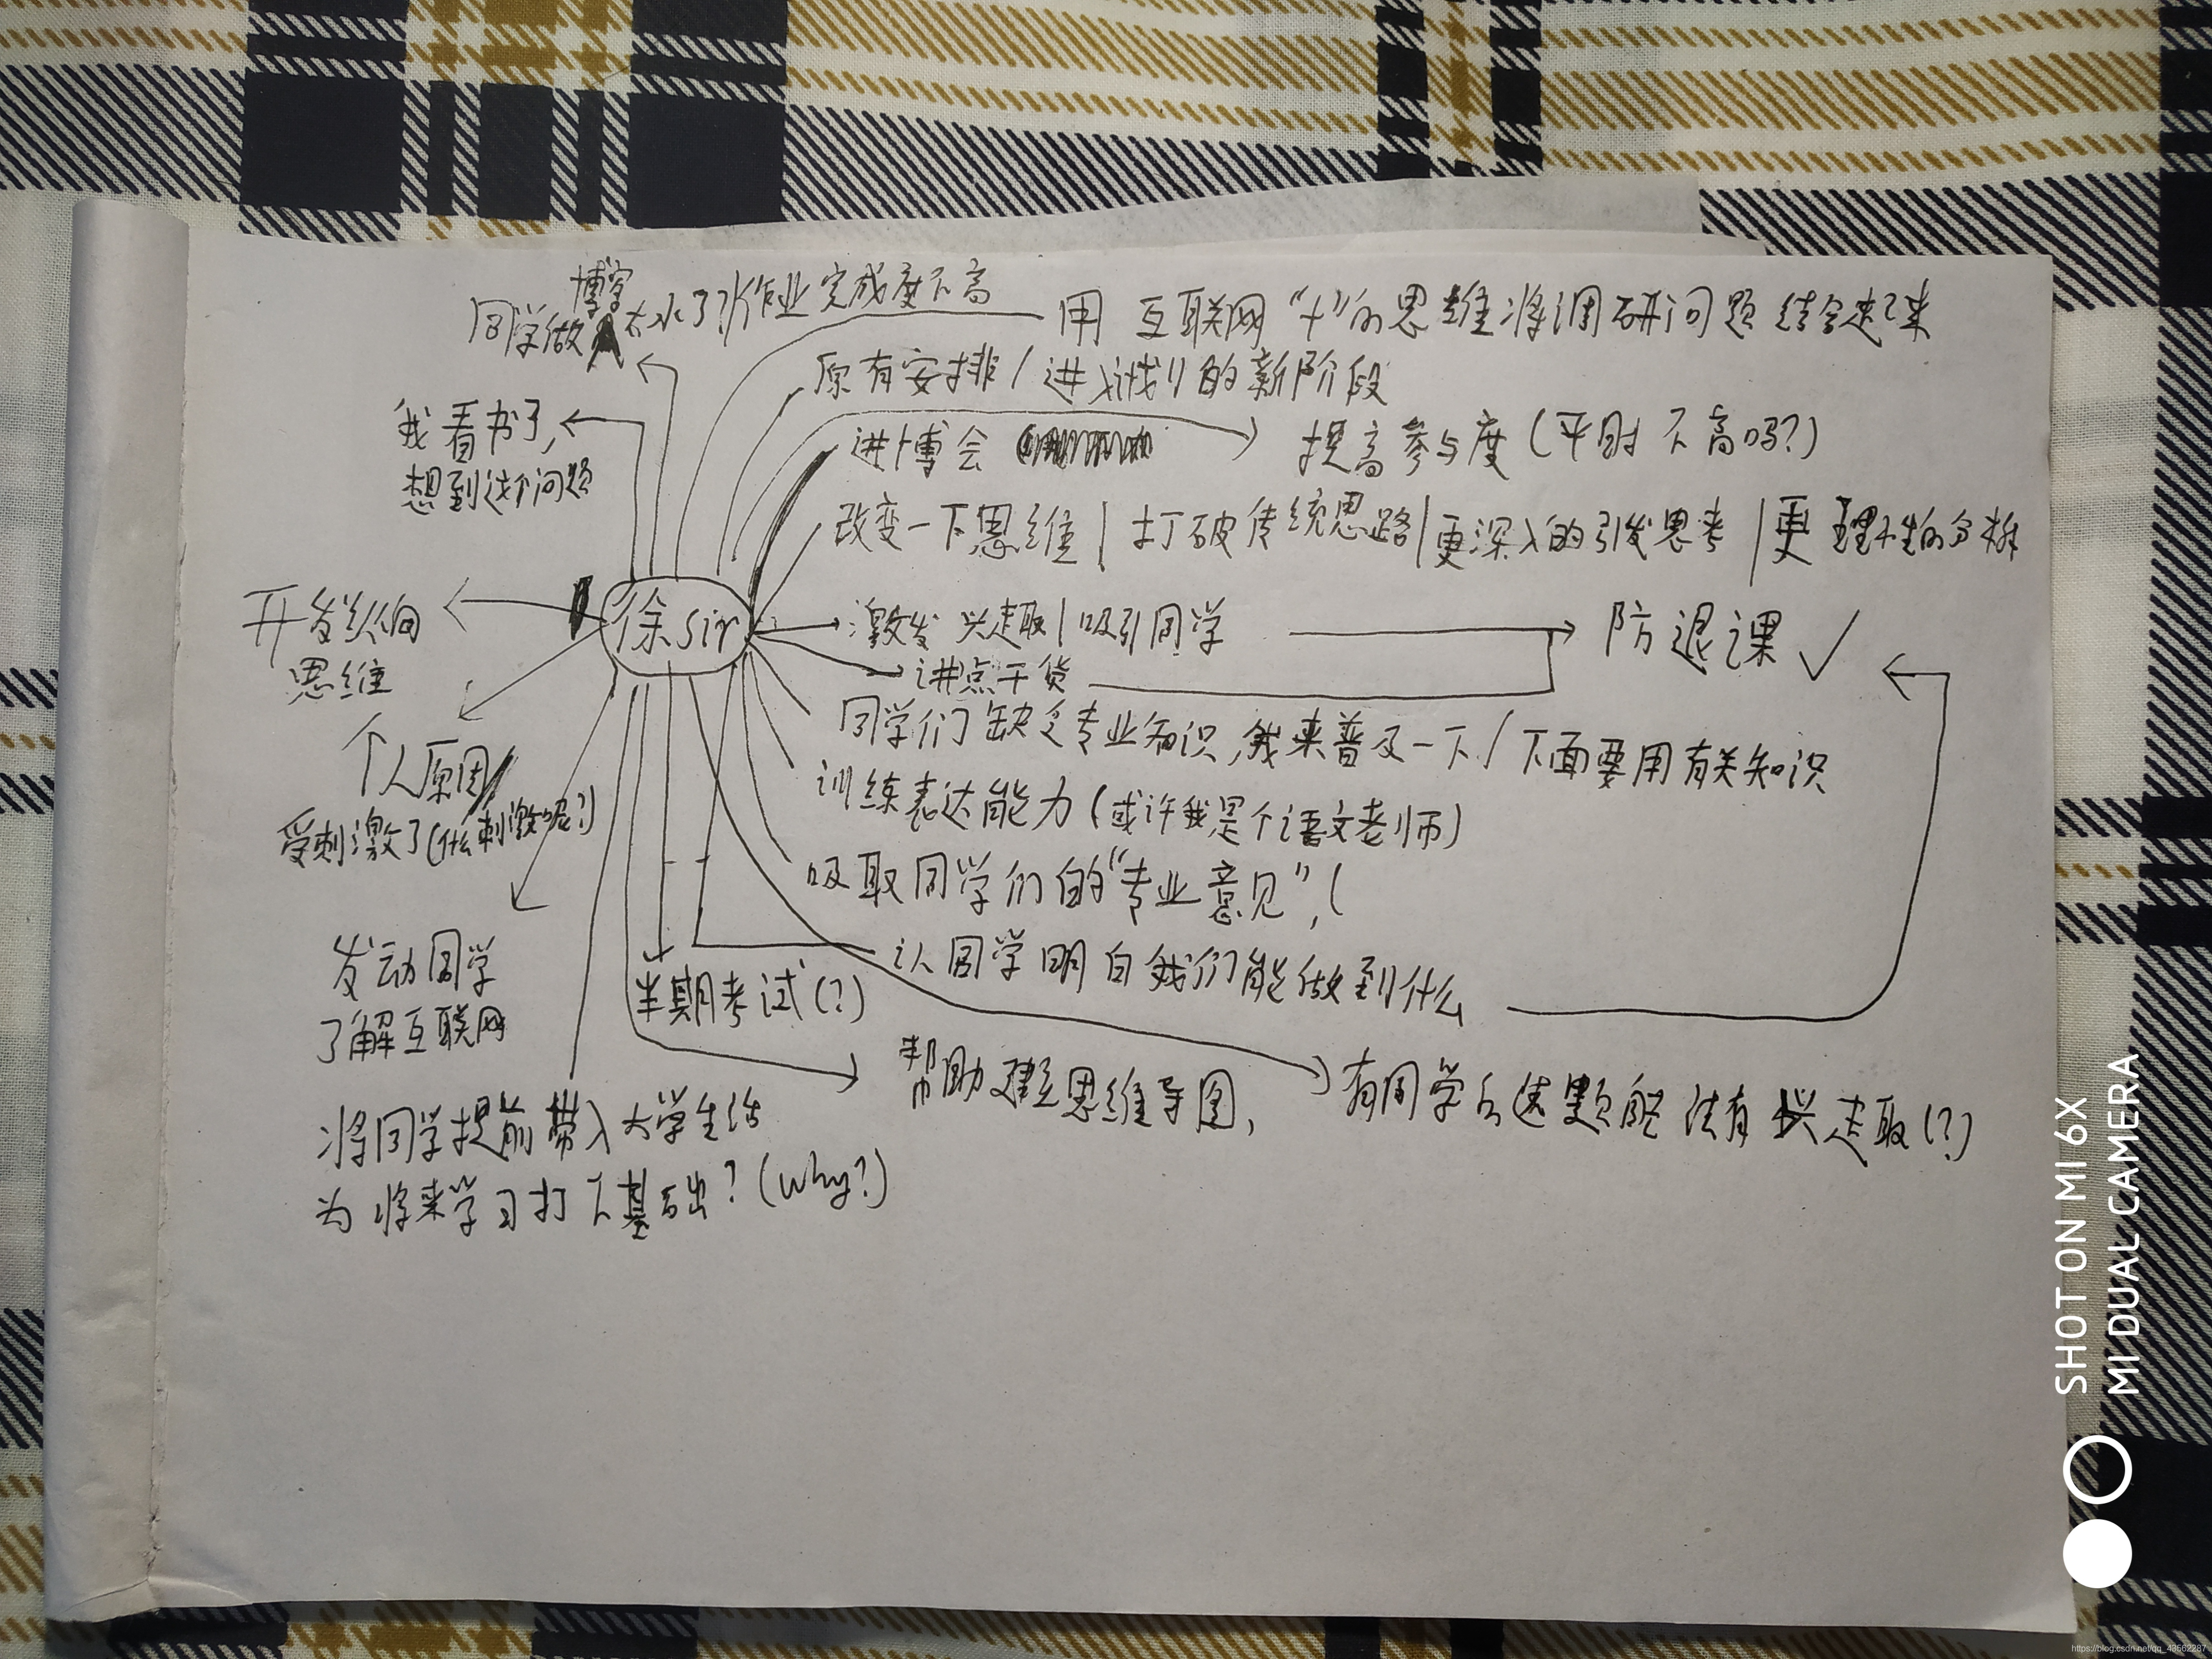 同学做博客太水了/作业完成度不高
用 互联网“+”的思维将调研问题结合起来
原有安排/进入计划的新阶段
我看书了,
想到这个问题
进博会
提高参与度(平时不高吗?)
改变一下思维|打破传统思路|更深入的引发思考|更理性的分析
开发纵向
思维
徐sir
激发兴趣|吸引同学
防退课✓
讲点干货
同学们缺乏专业知识,我来普及一下/下面要用有关知识
个人原因/
受刺激了(什么刺激呢?)
训练表达能力(或许我是个语文老师)
吸取同学们的“专业意见”,(
发动同学
了解互联网
半期考试(?)
让同学明白我们能做到什么
帮助建立思维导图,
有同学对这题能没有兴趣(?)
将同学提前带入大学生活
为将来学习打下基础?(why?)
SHOT ON MI 6X
MI DUAL CAMERA
https://blog.csdn.net/qq_43562287